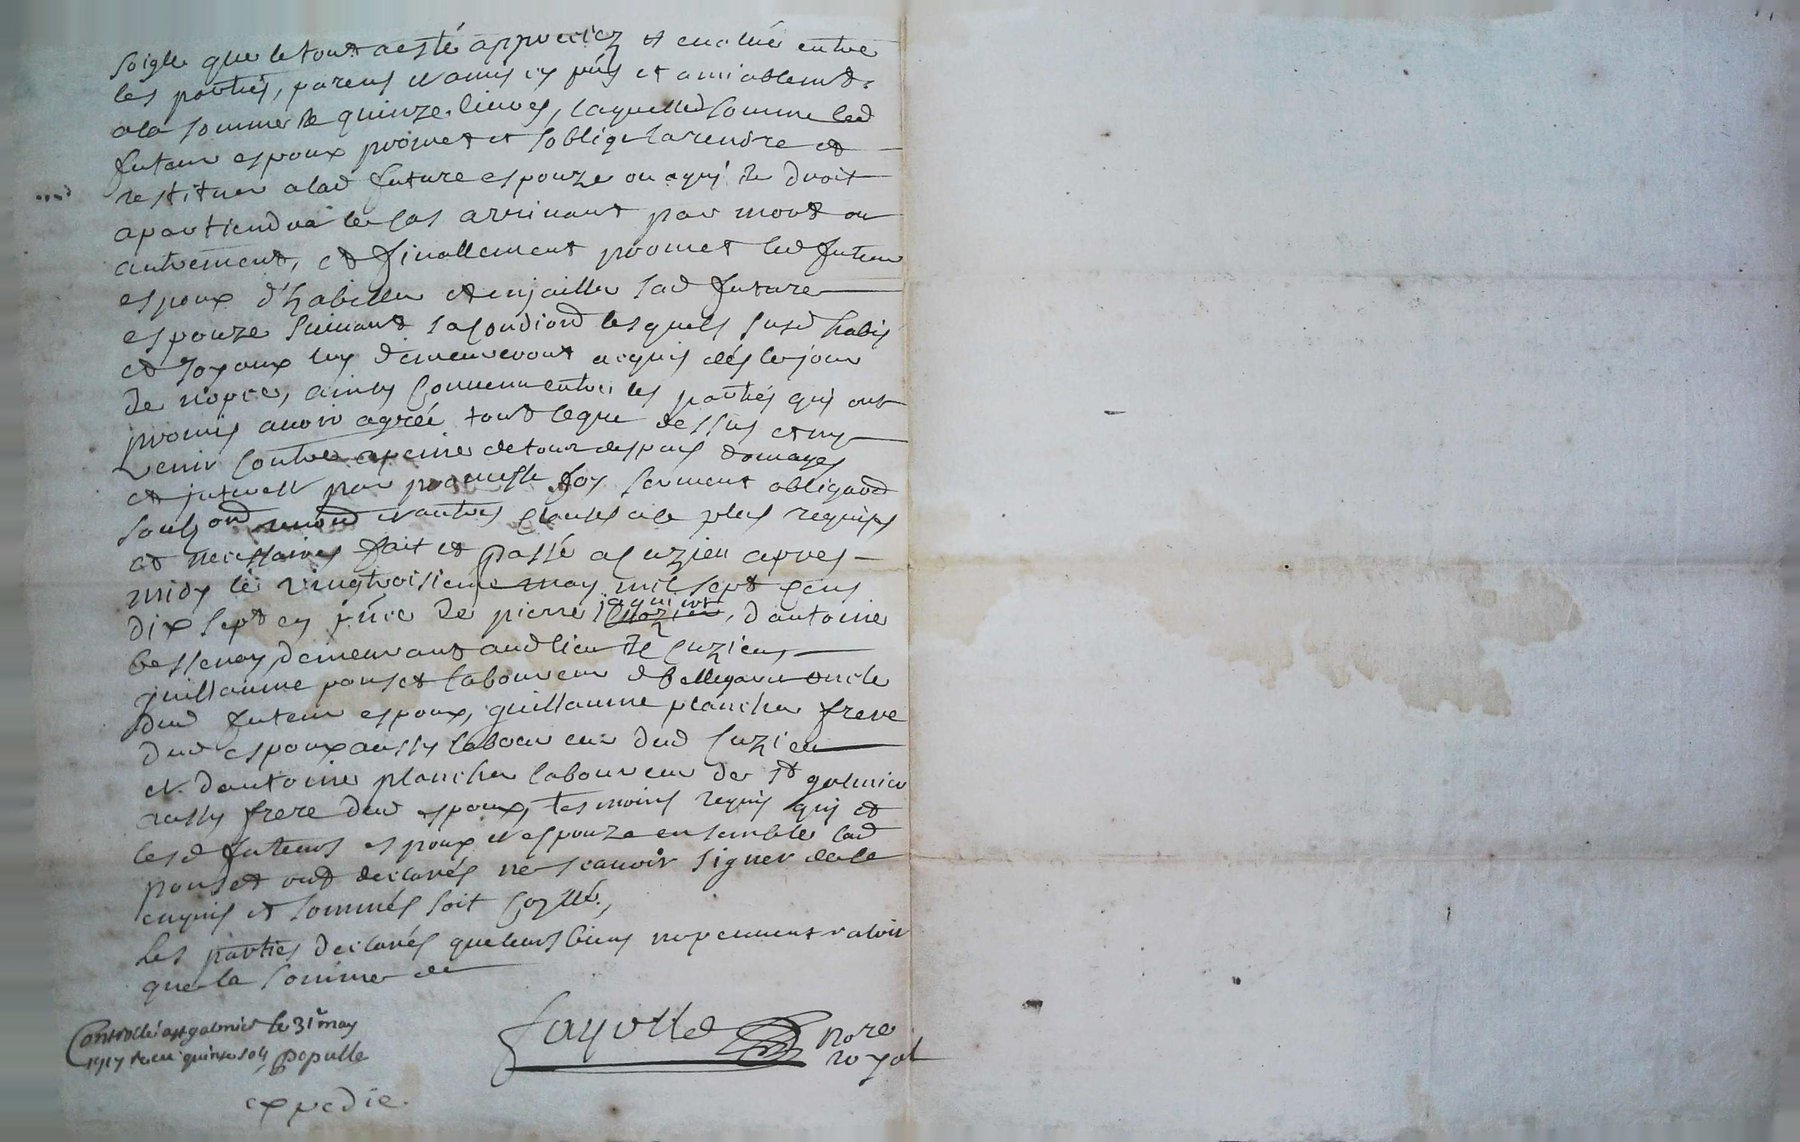 soigle que le tout a esté appreciez et evalué entre
les parties, parens et amis cy pnts et amiablemt
a la somme de quinze livres, laquelle somme led
futeur espoux promet et soblige la rendre et
restituer a lad future espouze ou a qui de droit
apartiendra le cas arrivant par mort ou
autrement, et finallement promet led futeur
espoux d'habiller et enjailler sad future
espouze suivant sa condiond lesquels susd habis
et joyaux luy demeureront acquis dés le jour
de nopce, ainsy convenu entre les parties qui ont
promis avoir agréé tout ceque dessus et ny
venir contre a peine de tous despens domages
et interest par promesse foy serment obligaond
soubz ond renond et autres clauses a ce plus requises
et necessaires fait et passé a cuzieu apres
midy le vingtroisieme may mil sept cens
dix sept en pnce de pierre jaquiert, d'antoine
bessenay demeurant aud lieu de cuzieu
guillaume ponset laboureur de bellegarde oncle
dud futeur espoux, guillaume plancher frere
dud espoux aussy laboureur dud cuzieu
et dantoine plancher laboureur de st galmier
aussy frere dud espoux, tesmoins requis qui et
lesd futeurs espoux et espouze ensemble led
ponset ont declarés ne scavoir signer de ce
enquis et sommés soit controllé,
les parties declarés que leurs biens nopeuvent valoir
que la somme de
fayolle nore
royal
Controllé a st galmier le 31e may
1717 receu quinze sols populle
expedie.